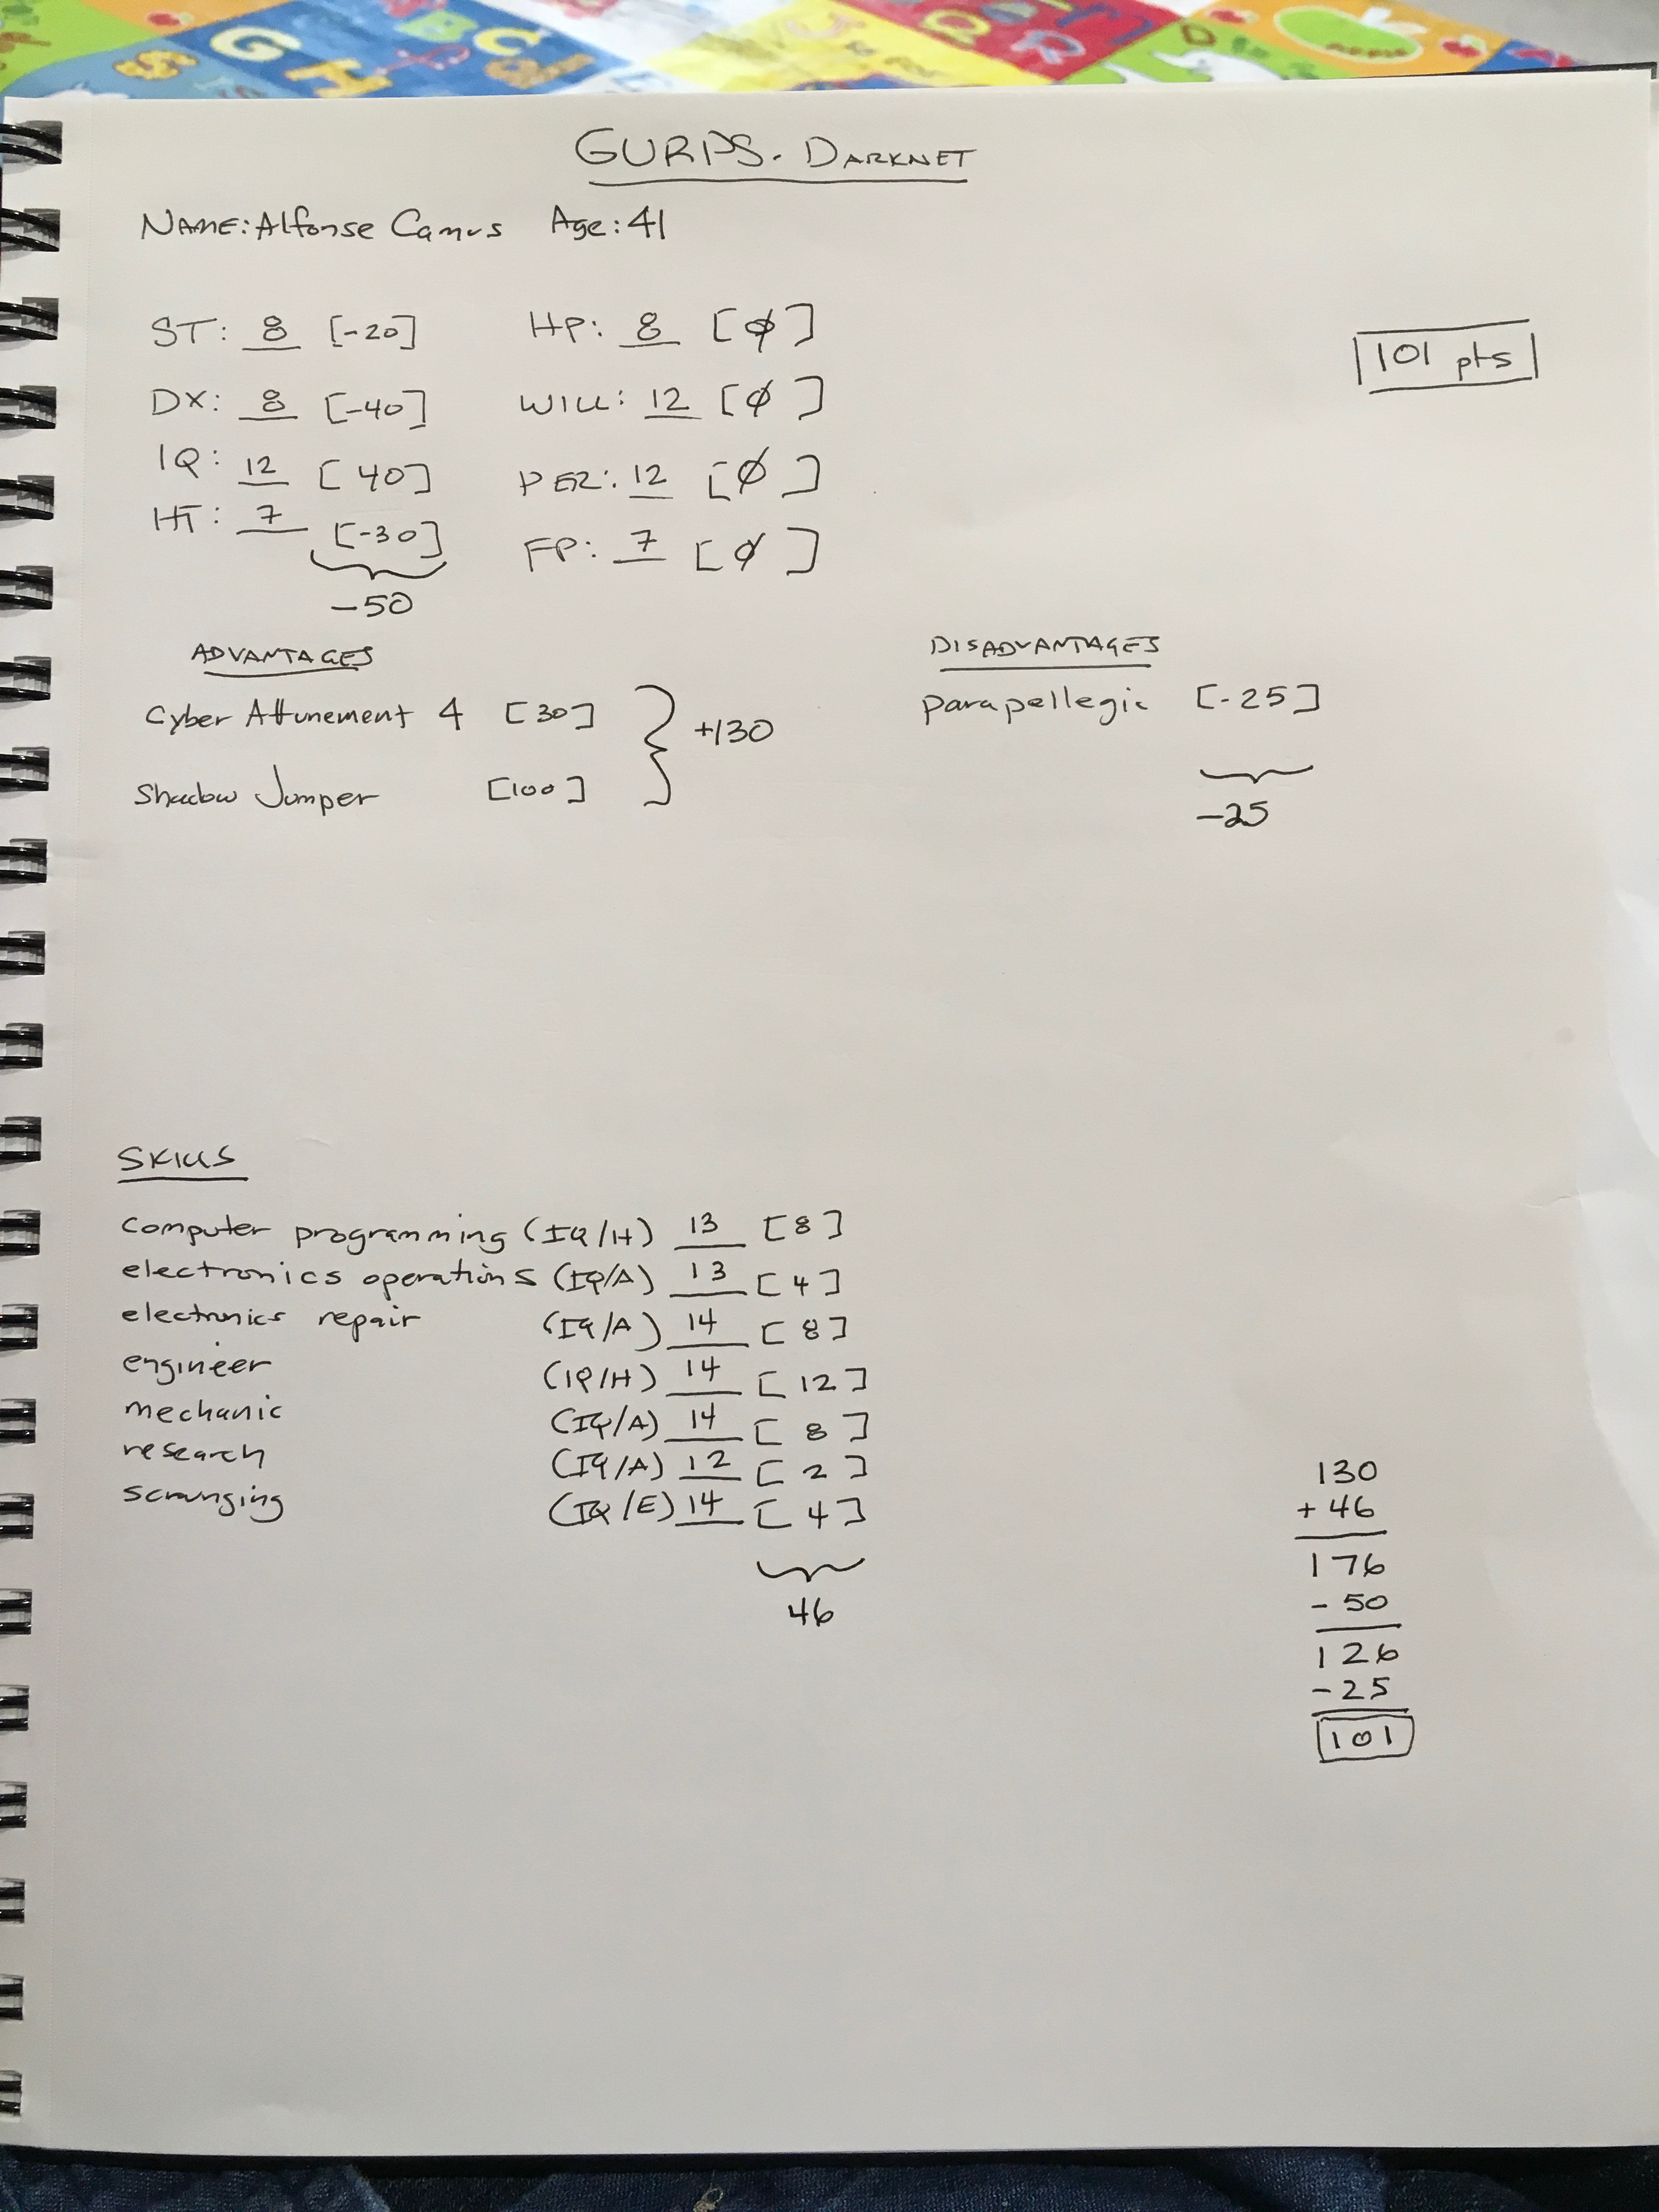 GURPS. DARKNET
NAME: Alfonse Camus Age: 41
101 pts
ST: 8 [-20] HP: 8 [ø]
DX: 8 [-40] WILL: 12 [ø]
IQ: 12 [40] PER: 12 [ø]
HT: 7 [-30] FP: 7 [ø]
-50
ADVANTAGES
Cyber Attunement 4 [30]
+130
Shadow Jumper [100]
DISADVANTAGES
parapellegic [-25]
-25
SKILLS
computer programming (IQ/H) 13 [8]
electronics operations (IQ/A) 13 [4]
electronics repair (IQ/A) 14 [8]
engineer (IQ/H) 14 [12]
mechanic (IQ/A) 14 [8]
research (IQ/A) 12 [2]
scrounging (IQ/E) 14 [4]
46
130
+ 46
176
- 50
126
- 25
101
G B C
H
S
R R
D